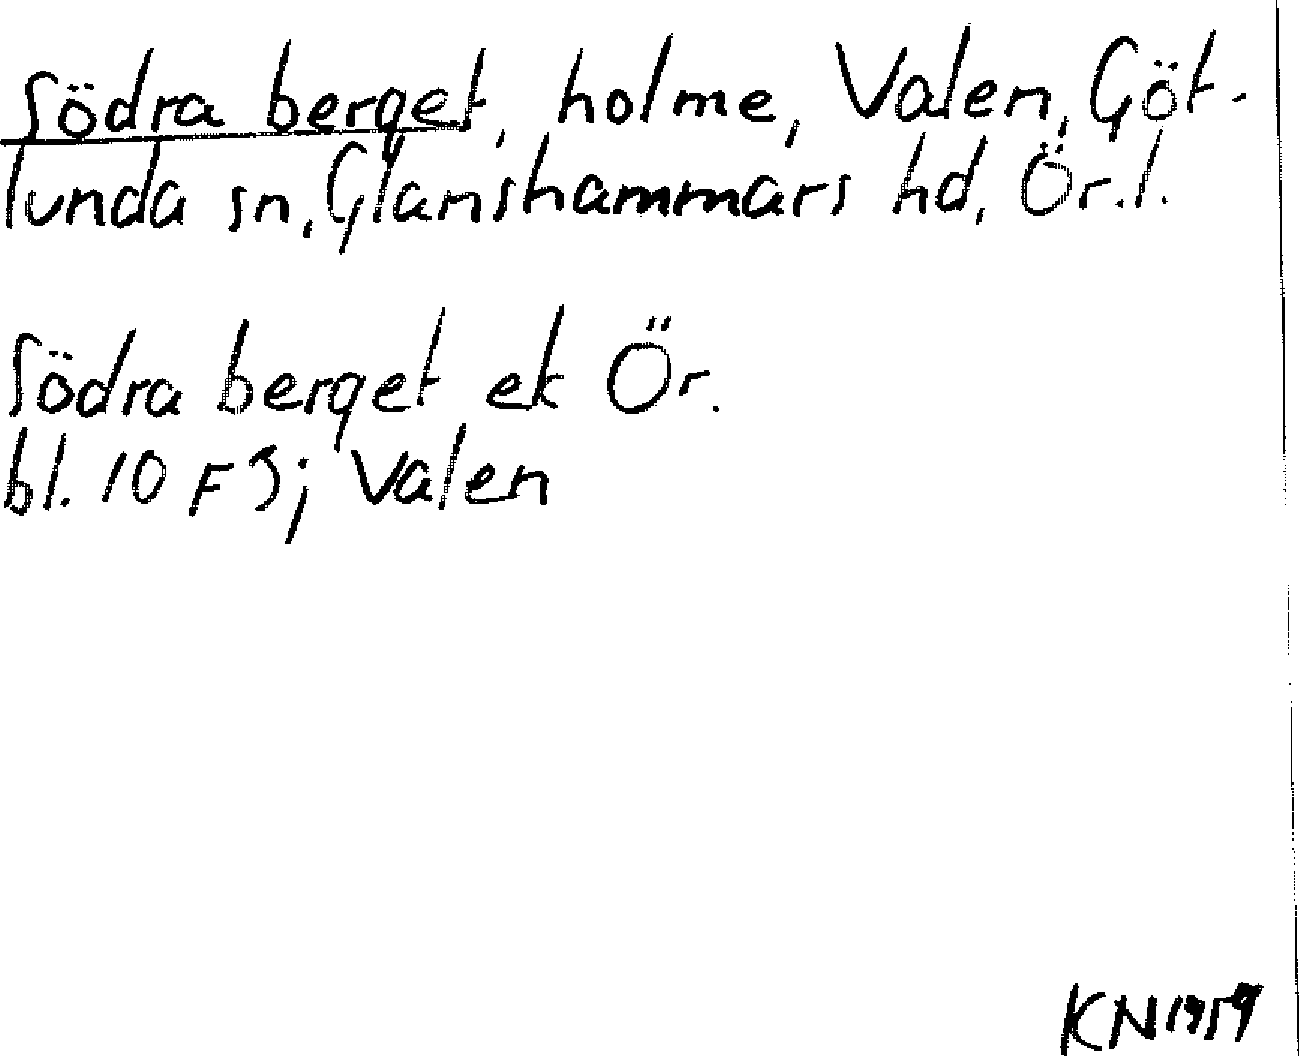 Södra berget, holme, Valen, Göt-
lunda sn, Glanshammars hd, Ör.l.
Södra berget ek Ör.
bl. 10 F 3j Valen
KN 1959